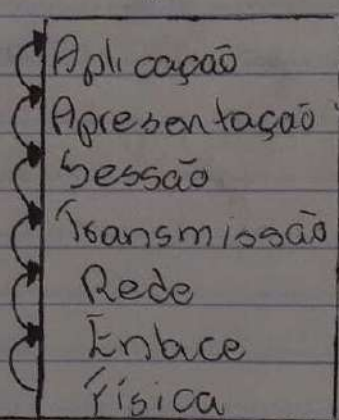 Aplicação
Apresentação
Sessão
Transmissão
Rede
Enlace
Física